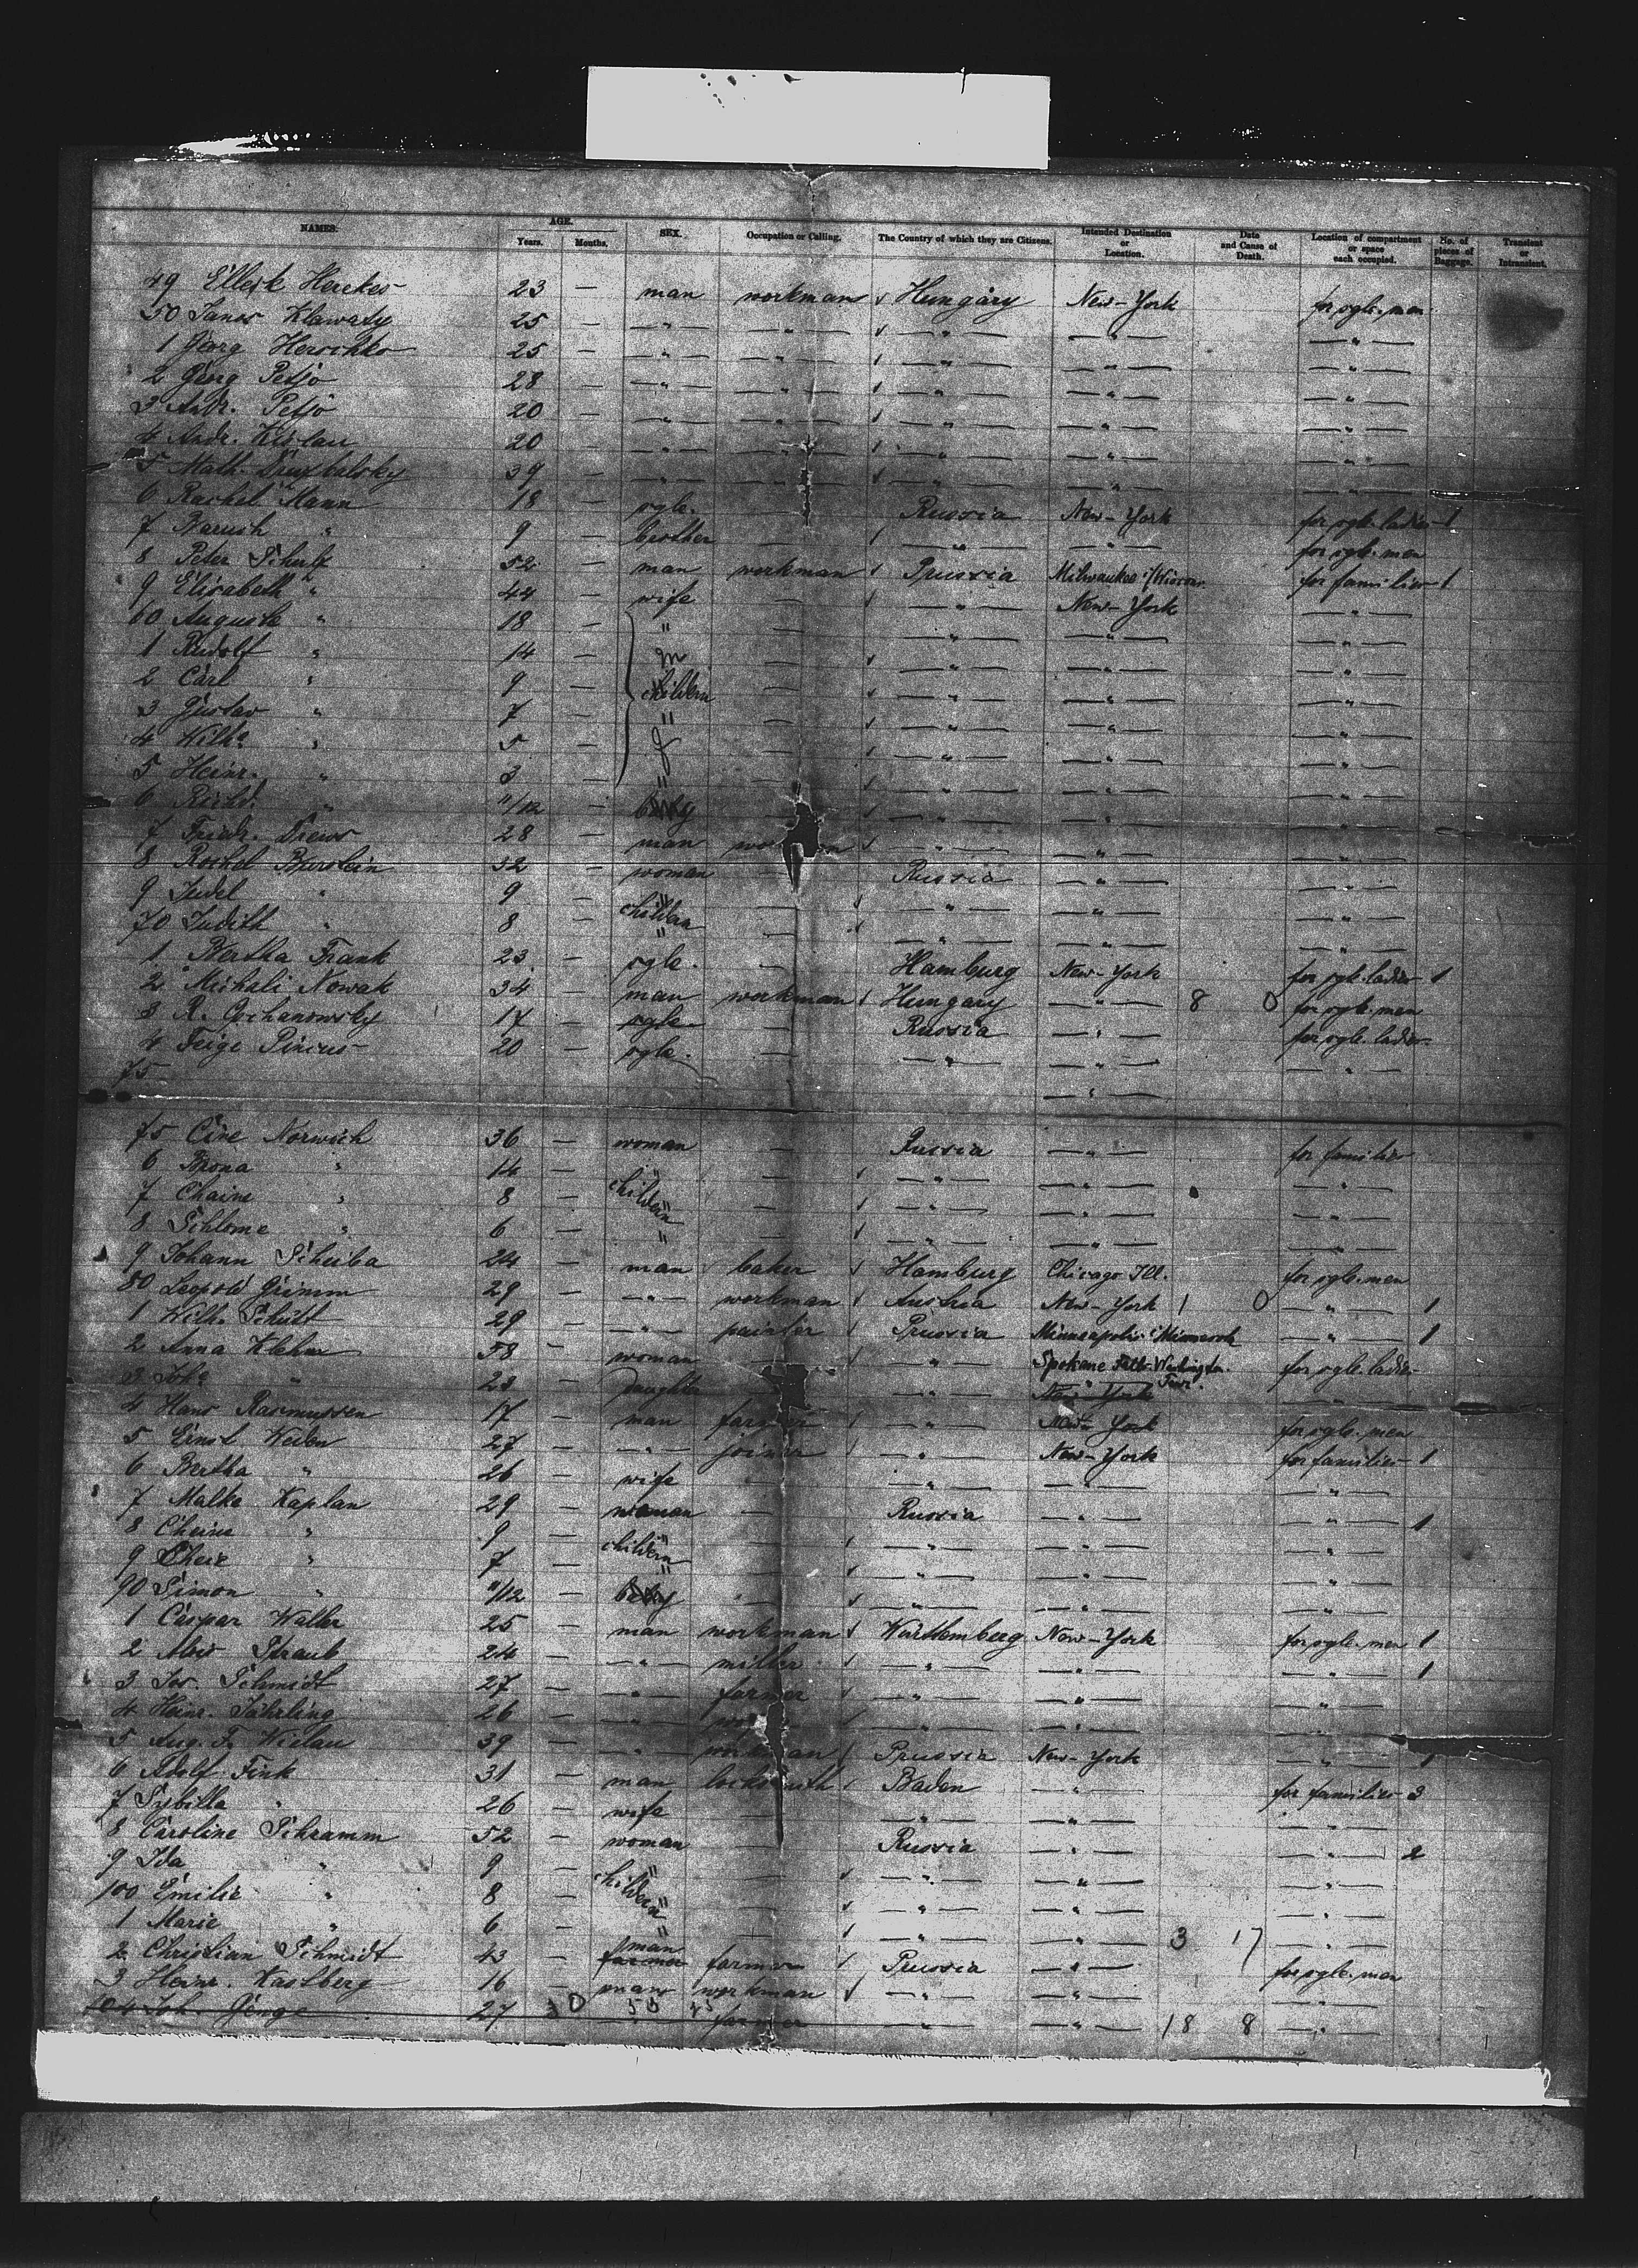 NAMES. AGE. Years. Months. SEX. Occupation or Calling. The Country of which they are Citizens. Intended Destination or Location. Date and Cause of Death. Location of compartment or space each occupied. No. of pieces of Baggage. Transient or Intransient.
49 23 — man workman Hungary New-York for sgle. men
50 Janos Klawaty 25 — —"— —"— —"— —"— —"—
1 Georg Herochko 25 — —"— —"— —"— —"— —"—
2 Georg Petjo 28 — —"— —"— —"— —"— —"—
3 Andr. Petjo 20 — —"— —"— —"— —"— —"—
4 Andr. Kislau 20 — —"— —"— —"— —"— —"—
5 Math. 39 — —"— —"— —"— —"— —"—
6 Rachel Mann 18 — sgle. — Russia New-York for sgle. ladies 1
7 Baruch " 9 — brother — —"— —"— for sgle. men
8 Peter Schulz 52 — man workman Prussia Milwaukee for families 1
9 Elisabeth " 44 — wife — —"— New-York —"—
60 Auguste " 18 — " — —"— —"— —"—
1 Rudolf " 14 — — —"— —"— —"—
2 Carl " 9 — childern — —"— —"— —"—
3 Gustav " 7 — " — —"— —"— —"—
4 Wilh. " 5 — — —"— —"— —"—
5 Heinr. " 3 — " — —"— —"— —"—
6 Richd. " 11/12 — baby — —"— —"— —"—
7 Friedr. Drews 28 — man —"— —"— —"—
8 Rochel Burstein 32 — woman — Russia —"— —"—
9 Judel " 9 — childern — —"— —"— —"—
70 Judith " 8 — " — —"— —"— —"—
1 Bertha Frank 23 — sgle. — Hamburg New-York for sgle. ladies 1
2 Michali Nowak 34 — man workman Hungary —"— 8 0 for sgle. men
3 R. Cochanowsky 17 — sgle. — Russia —"— for sgle. ladies
4 Feige Pincus 20 — sgle. — —"— —"— —"—
75 —"—
75 Cive Norwich 36 — woman — Russia —"— for families
6 Brona " 14 — " — —"— —"— —"—
7 Chaine " 8 — childern — —"— —"— —"—
8 Schlome " 6 — " — —"— —"— —"—
9 Johann Scheiba 24 — man baker Hamburg Chicago Ill. for sgle. men
80 Leopold Grimm 29 — —"— workman Austria New-York 1 0 —"— 1
1 Wilh. Schütt 29 — —"— painter Prussia Minneapolis —"— 1
2 Anna Klehm 58 — woman — —"— Spokane Falls for sgle. ladies
3 Joh. " 23 — daughter —"— New-York —"—
4 Hans Rasmussen 17 — man farmer —"— New-York for sgle. men
5 Ernst Weiden 27 — —"— joiner —"— New-York for families 1
6 Bertha " 26 — wife — —"— —"— —"—
7 Malke Kaplan 29 — woman — Russia —"— —"— 1
8 Cheine " 9 — childern — —"— —"— —"—
9 " 7 — " — —"— —"— —"—
90 Simon " 11/12 — baby — —"— —"— —"—
1 Caspar Walter 25 — man workman Württemberg New-York for sgle. men 1
2 Alois Straub 24 — —"— miller —"— —"— —"— 1
3 Jos. Schmidt 27 — —"— farmer —"— —"— —"—
4 Heinr. Jährling 26 — —"— —"— —"— —"—
5 Aug. F. Wielau 39 — —"— workman Prussia New-York —"— 1
6 Adolf Fink 31 — man locksmith Baden —"— for families 3
7 Sybilla " 26 — wife — —"— —"— —"—
8 Caroline Schramm 52 — woman — Russia —"— —"— 2
9 Ida " 9 — childern — —"— —"— —"—
100 Emilie " 8 — " — —"— —"— —"—
1 Marie " 6 — " — —"— —"— 3 17 —"—
2 Christian Schmidt 43 — farmer man farmer Prussia —"— for sgle. men
3 Heinr. Kastberg 16 — man workman —"— —"— —"—
104 Joh. Genge 27 —"— farmer —"— —"— 18 8 —"—